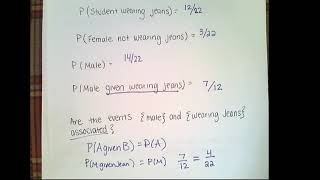 P(Student wearing jeans) = 12/22
P(Female not wearing jeans) = 3/22
P(Male) = 14/22
P(Male given wearing jeans) = 7/12
Are the events {male} and {wearing jeans}
associated?
P(A given B) = P(A)
P(M given Jean) = P(M) 7/12 = 4/22